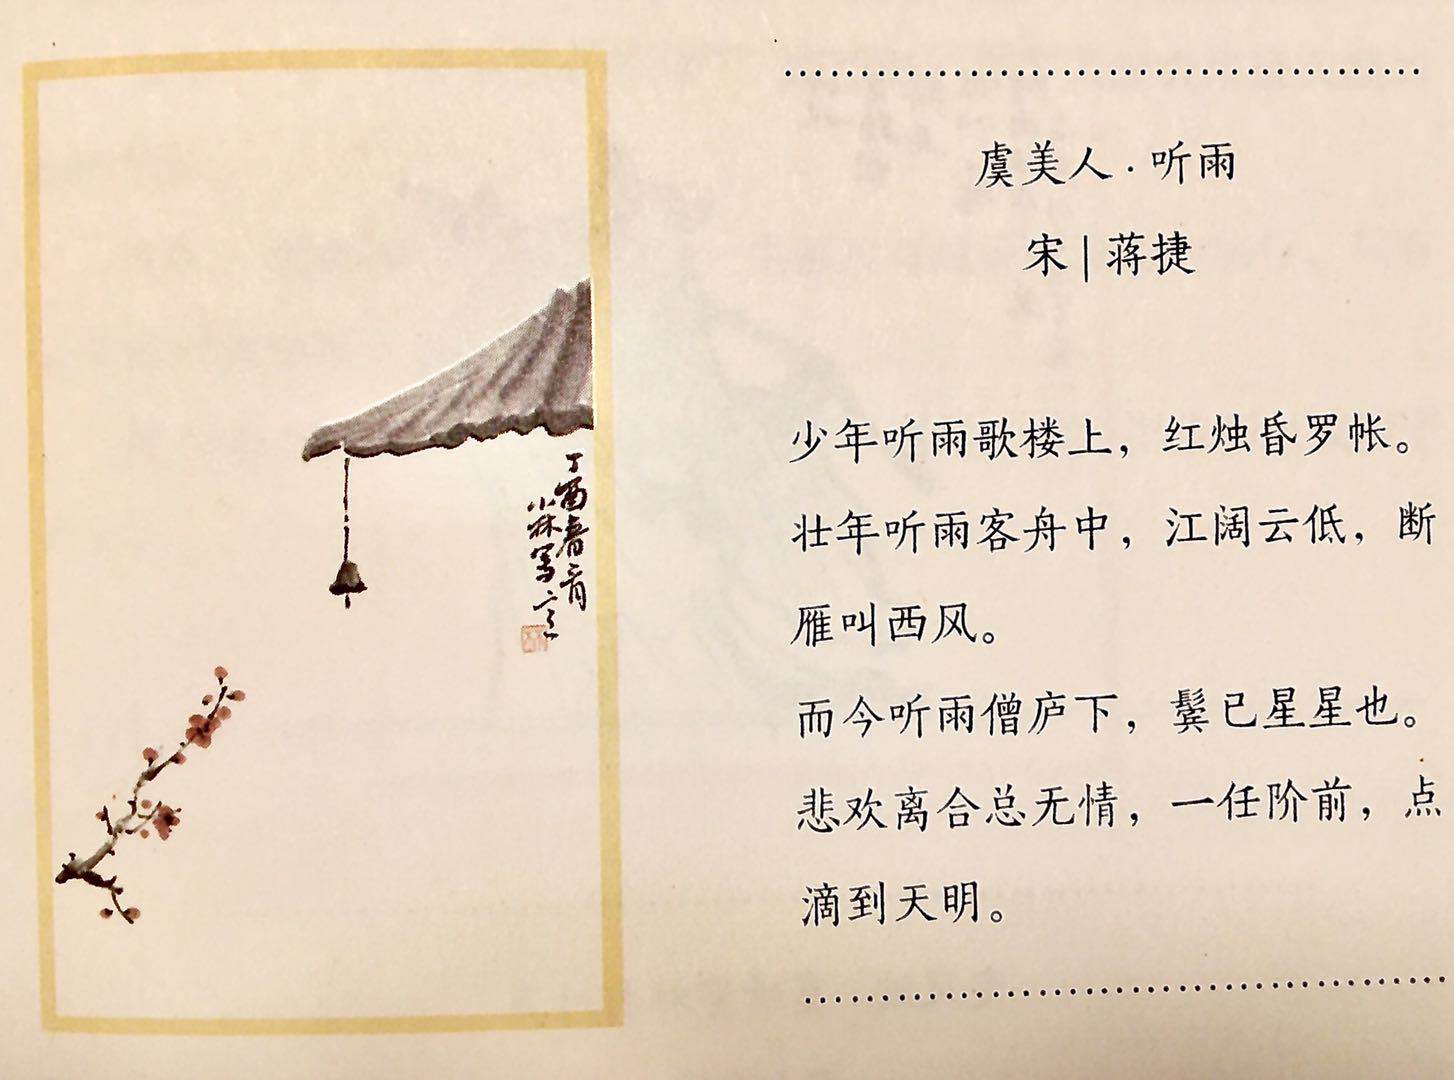 虞美人·听雨
宋|蒋捷
少年听雨歌楼上，红烛昏罗帐。
壮年听雨客舟中，江阔云低，断
雁叫西风。
而今听雨僧庐下，鬓已星星也。
悲欢离合总无情，一任阶前，点
滴到天明。
丁酉春月
小林写